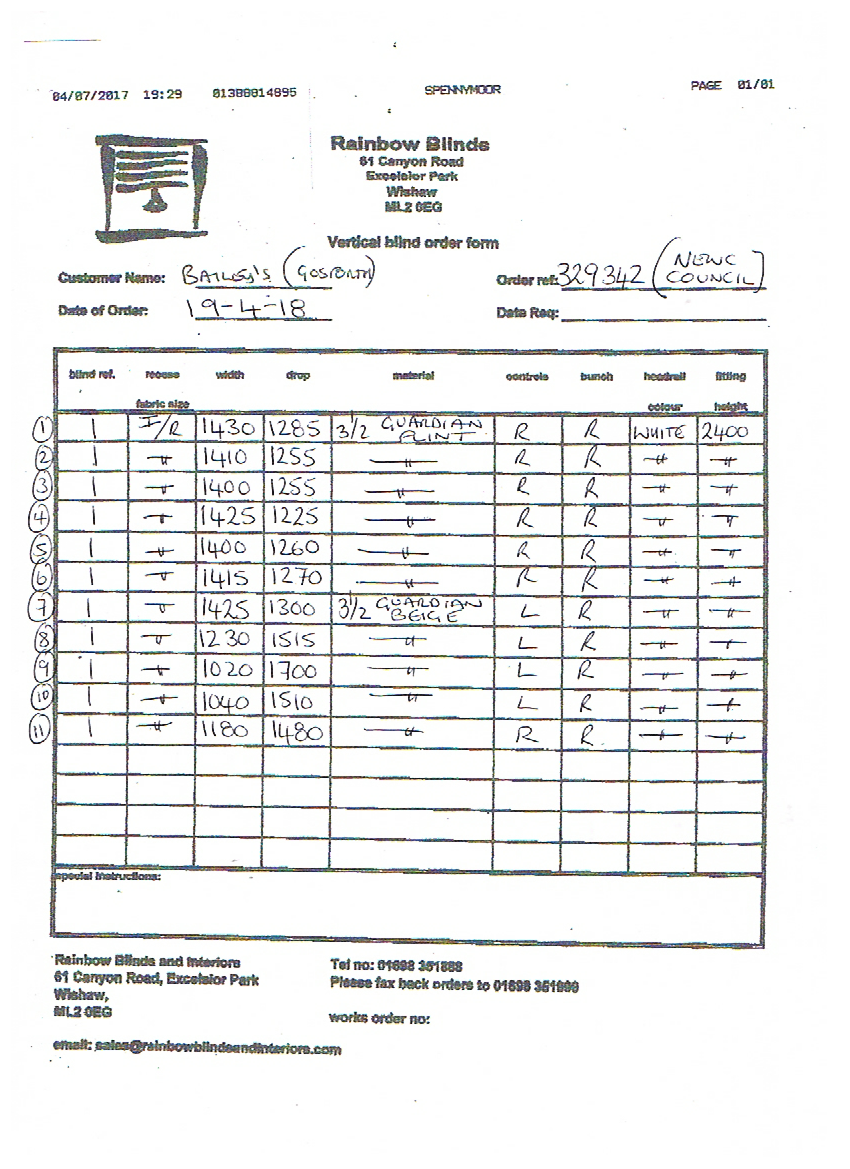 04/07/2017 19:29 01388814895 SPENNYMOOR PAGE 01/01
Rainbow Blinds
61 Canyon Road
Excelsior Park
Wishaw
ML2 0EG
Vertical blind order form
Customer Name: BAILEY'S (GOSFORTH) Order ref: 329342 (NEWC COUNCIL)
Date of Order: 19-4-18 Date Req:
blind ref. recess width drop material controls bunch headrail fitting
fabric size colour height
1 1 I/R 1430 1285 3 1/2 GUARDIAN FLINT R R WHITE 2400
2 1 " 1410 1255 " R R " "
3 1 " 1400 1255 " R R " "
4 1 " 1425 1225 " R R " "
5 1 " 1400 1260 " R R " "
6 1 " 1415 1270 " R R " "
7 1 " 1425 1300 3 1/2 GUARDIAN BEIGE L R " "
8 1 " 1230 1515 " L R " "
9 1 " 1020 1700 " L R " "
10 1 " 1040 1510 " L R " "
11 1 " 1180 1480 " R R " "
special instructions:
Rainbow Blinds and Interiors
61 Canyon Road, Excelsior Park
Wishaw,
ML2 0EG
Tel no: 01698
Please fax back orders to 01698
works order no:
email: sales@rainbowblindsandinteriors.com